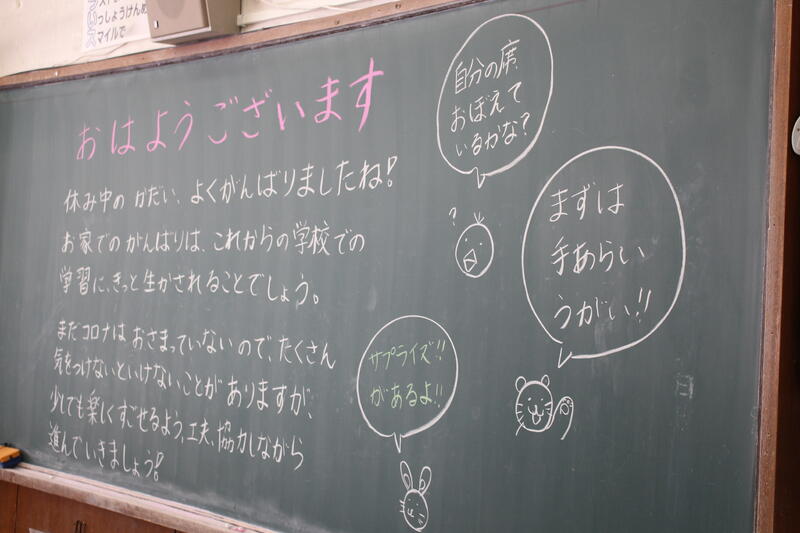 っしょうけんめ
マイルで
おはようございます
休み中の かだい、よくがんばりましたね!
お家でのがんばりは、これからの学校での
学習に、きっと生かされることでしょう。
まだコロナは おさまっていないので、たくさん
気をつけないといけないことが ありますが、
少しでも楽しくすごせるよう、工夫、協力しながら
進んでいきましょう!
自分の席、
おぼえて
いるかな?
?
まずは
手あらい
うがい!!
サプライズ!!
があるよ!!